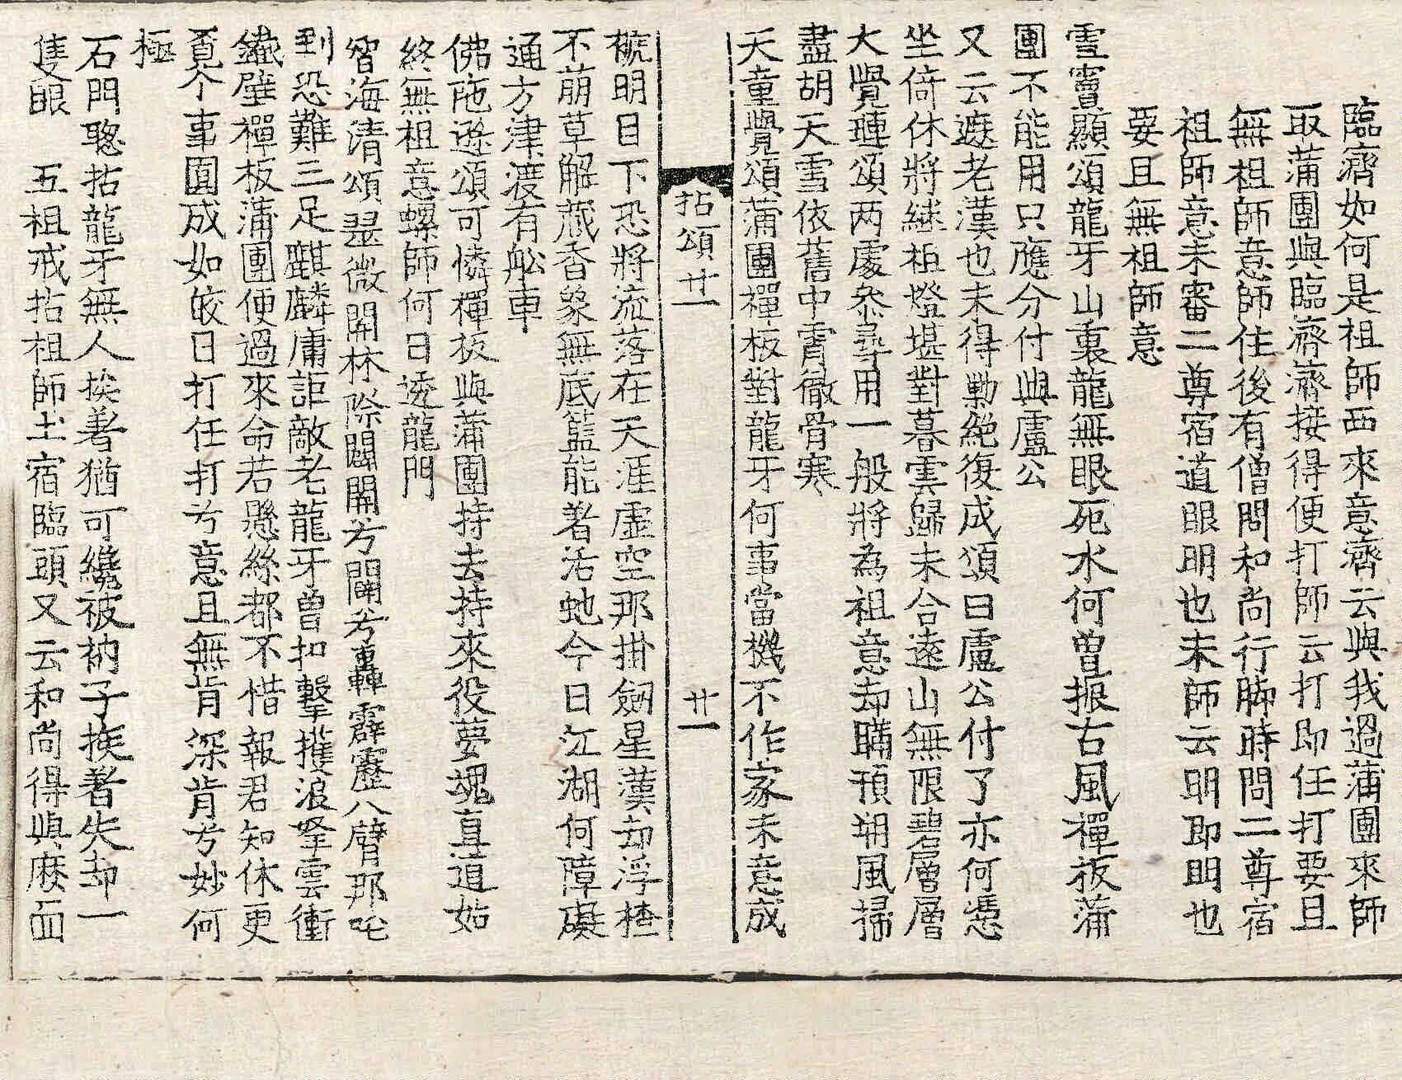 臨濟如何是祖師西來意濟云與我過蒲團來師
取蒲團與臨濟濟接得便打師云打即任打要且
無祖師意師住後有僧問和尚行脚時問二尊宿
祖師意未審二尊宿道眼明也未師云明即明也
要且無祖師意
雪竇顯頌龍牙山裏龍無眼死水何曾振古風禪板蒲
團不能用只應分付與盧公
又云遮老漢也未得勦絶復成頌曰盧公付了亦何憑
坐倚休將継祖燈堪對暮雲歸未合遠山無限碧層層
大覺璉頌两處叅尋用一般將為祖意却瞞頇朔風掃
盡胡天雪依舊中霄徹骨寒
天童覺頌蒲團禪板對龍牙何事當機不作家未意成
拈頌廿一
廿一
褫明目下恐將流落在天涯虛空那掛劒星漢却浮槎
不萠草解蔵香象無底籃能着活虵今日江湖何障礙
通方津渡有舩車
佛陁遜頌可憐禪板與蒲團持去持來役夢魂直道始
終無祖意螺師何日透龍門
智海清頌翠微開林際闢開兮闢兮轟霹靂八臂那吒
到恐難三足麒麟庸詎敵老龍牙曾扣擊攫浪拏雲衝
鐵壁禪板蒲團便過來命若懸絲都不惜報君知休更
覓个事圓成如皎日打任打兮意且無肯深肯兮妙何
極
石門聦拈龍牙無人挨着猶可纔被衲子挨著失却一
隻眼　五祖戒拈祖師土宿臨頭又云和尚得與麽面